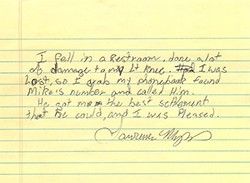 I fall in a Restroom, done a lot
of damage to my Lt Knee. I was
Lost, so I grab my phonebook found
Mike's number and called Him.
He got me the best settlement
that He could, and I was Pleased.